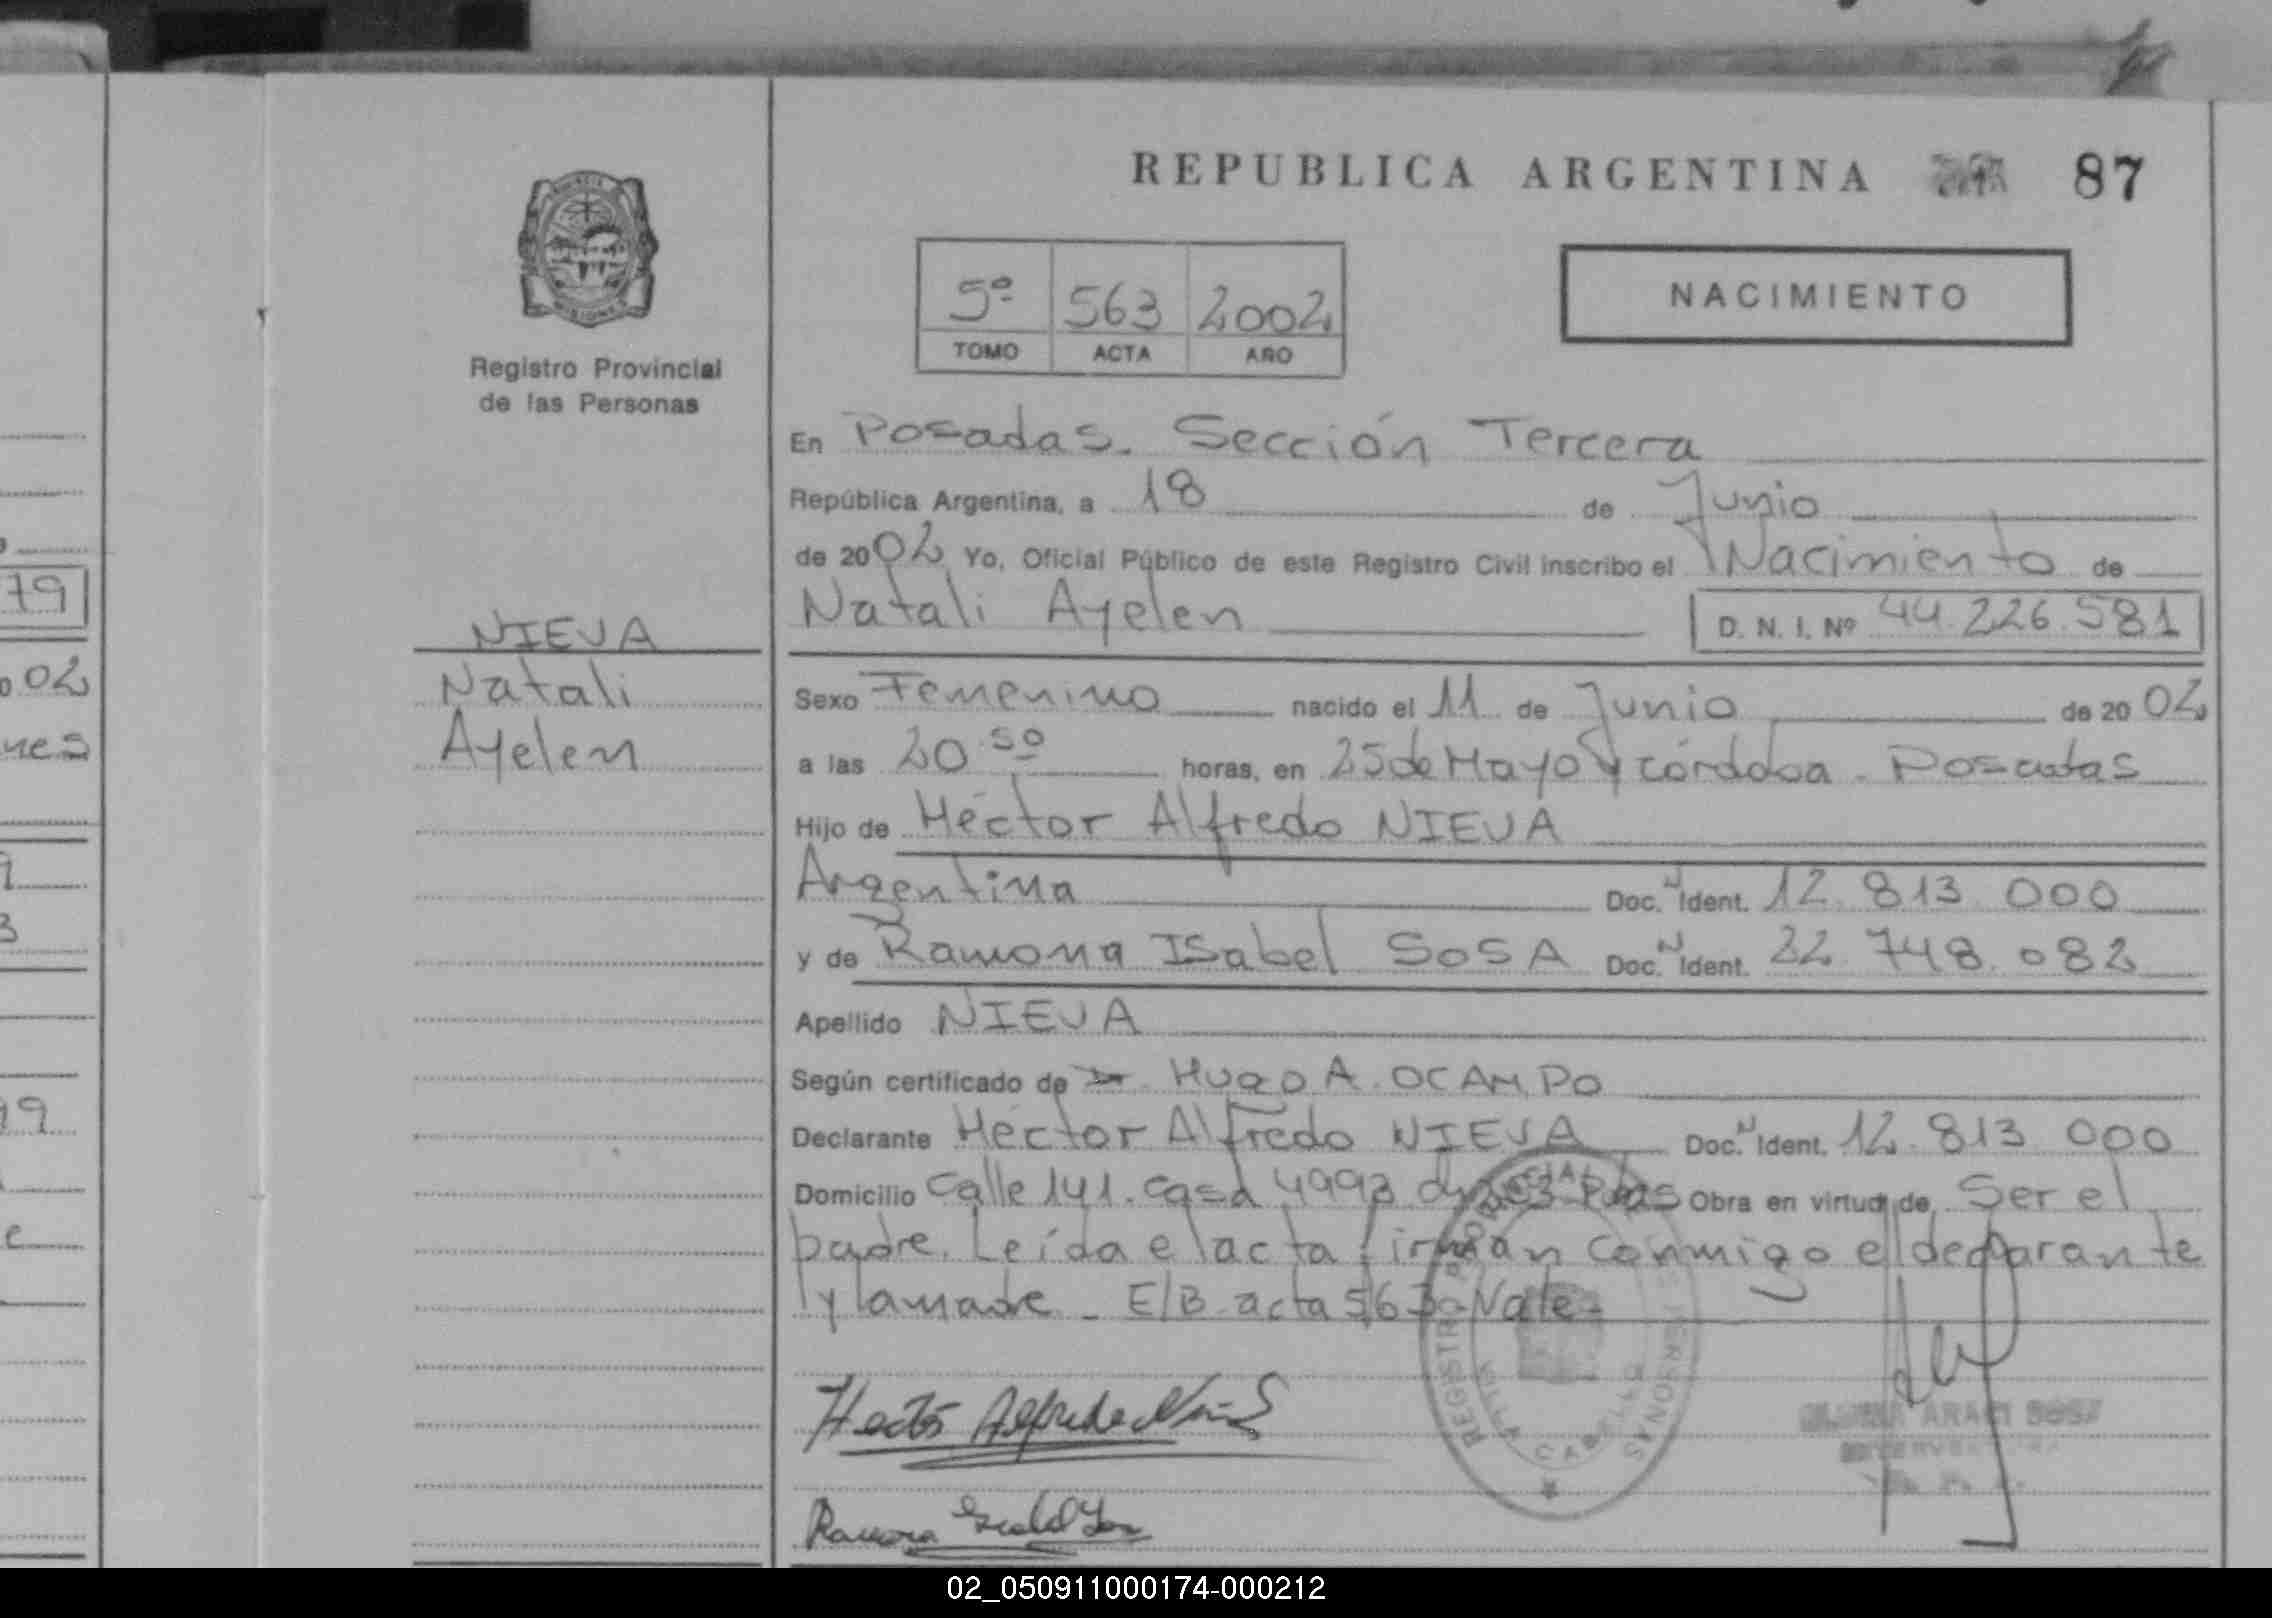 REPUBLICA ARGENTINA 87
5º 563 2002
TOMO ACTA AÑO
NACIMIENTO
Registro Provincial
de las Personas
En Posadas. Sección Tercera
República Argentina, a 18 de Junio
de 2002 Yo, Oficial Público de este Registro Civil inscribo el Nacimiento de
Natali Ayelen D. N. I. Nº 44.226.581
NIEVA
Natali
Ayelen
Sexo Femenino nacido el 11 de Junio de 2002
a las 20.50 horas, en 25 de Mayo y córdoba - Posadas
Hijo de Héctor Alfredo NIEVA
Argentina Doc. N Ident. 12.813.000
y de Ramona Isabel SOSA Doc. N Ident. 22.748.082
Apellido NIEVA
Según certificado de HUGO A. OCAMPO
Declarante Héctor Alfredo NIEVA Doc. N Ident. 12.813.000
Domicilio Calle 141. casa 4993 Pdas Obra en virtud de Ser el
padre. Leída el acta firman conmigo el declarante
y la madre - E/B acta 563 - Vale -
REGISTRO PROVINCIAL PERSONAS
CABELLO
Hector Alfredo
Ramona
ARACI SOSA
79
02
nes
9
3
99
e
02_050911000174-000212